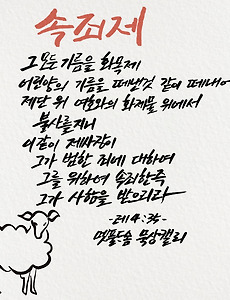 속죄제
그 모든 기름을 화목제
어린양의 기름을 떼낸것 같이 떼내어
제단 위 여호와의 화제물 위에서
불사를지니
이같이 제사장이
그가 범한 죄에 대하여
그를 위하여 속죄한즉
그가 사함을 받으리라
-레 4:35-
묵상캘리